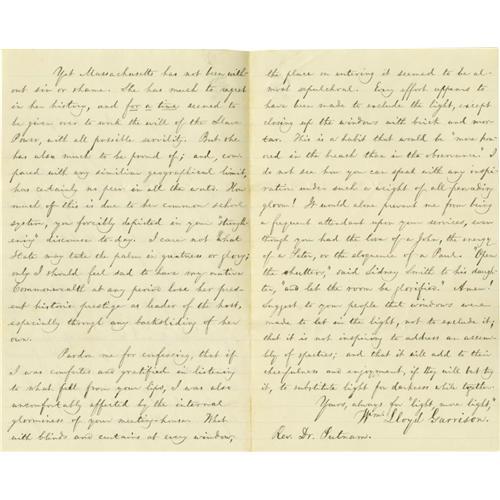 Yet Massachusetts has not been with-
out sin or shame. She has much to regret
in her history, and for a time seemed to
be given over to work the will of the Slave
Power, with all possible servility. But she
has also much to be proud of; and, com-
pared with any similar geographical limit,
has certainly no peer in all the world. How
much of this is due to her common school
system, you forcibly depicted in your "though
" discourse to-day. I care not what
State may take the palm in greatness or glory;
only I should feel sad to have my native
Commonwealth at any period lose her pres-
ent historic prestige as leader of the host,
especially through any backsliding of her
own.
Pardon me for confessing, that if
I was comforted and gratified in listening
to what fell from your lips, I was also
uncomfortably affected by the internal
gloominess of your meeting-house. What
with blinds and curtains at every window,
the place on entering it seemed to be al-
most sepulchral. Every effort appears to
have been made to exclude the light, except
closing up the windows with brick and mor-
tar. This is a habit that would be "more hon-
ored in the breach than in the observance." I
do not see how you can speak with any inspi-
ration under such a weight of all pervading
gloom! It would alone prevent me from being
a frequent attendant upon your services, even
though you had the love of a John, the energy
of a Peter, or the eloquence of a Paul. "Open
the shutters," said Sidney Smith to his daugh-
ter, "and let the room be glorified." Amen!
Suggest to your people that windows were
made to let in the light, not to exclude it;
that it is not inspiring to address an assem-
bly of spectres; and that it will add to their
cheerfulness and enjoyment, if they will but try
it, to substitute light for darkness while together.
Yours, always for "light, more light,"
Wm. Lloyd Garrison.
Rev. Dr. Putnam.